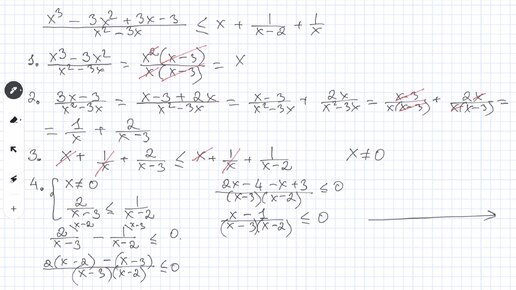 (x³ - 3x² + 3x - 3)/(x² - 3x) ≤ x + 1/(x-2) + 1/x
1. (x³ - 3x²)/(x² - 3x) = x²(x-3)/(x(x-3)) = x
2. (3x-3)/(x²-3x) = (x-3+2x)/(x²-3x) = (x-3)/(x²-3x) + 2x/(x²-3x) = (x-3)/(x(x-3)) + 2x/(x(x-3)) =
= 1/x + 2/(x-3)
3. x + 1/x + 2/(x-3) ≤ x + 1/x + 1/(x-2) x≠0
4. { x≠0
2/(x-3) ≤ 1/(x-2)
2/(x-3) ^(x-2) - 1/(x-2) ^(x-3) ≤ 0
(2(x-2) - (x-3))/((x-3)(x-2)) ≤ 0
(2x-4-x+3)/((x-3)(x-2)) ≤ 0
(x-1)/((x-3)(x-2)) ≤ 0